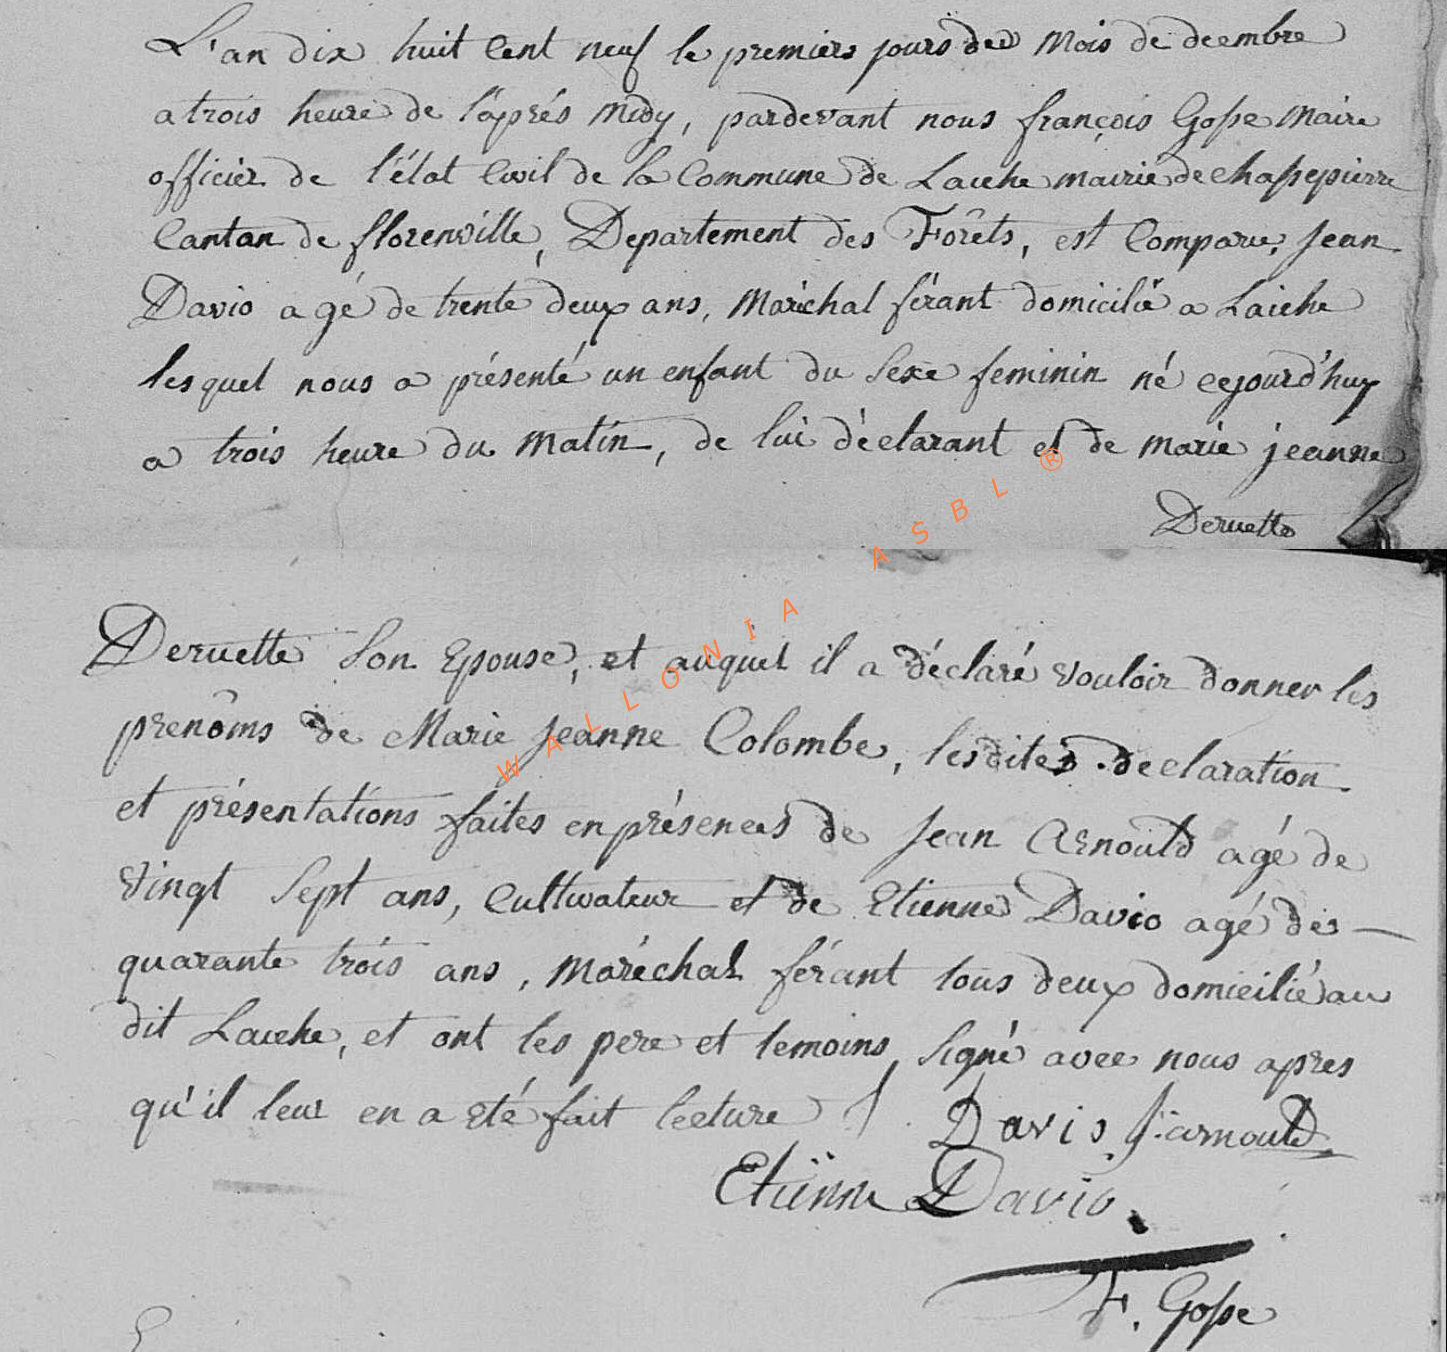 L'an dix huit Cent neuf le premiers jours des Mois de decembre
a trois heure de l'aprés midy, pardevant nous françois Gosse Maire
officier de l'état Civil de la Commune de Laiche mairie de chassepierre
Cantan de florenville, Departement des Forêts, est Comparu, Jean
Davio agé de trente deux ans, Maréchal férant domicilié a Laiche
lesquel nous a présenté un enfant du Sexe feminin né cejourd'huy
a trois heure du matin, de lui déclarant et de marie jeanne
Deruette
Deruette Son Epouse, et auquel il a déclaré vouloir donner les
prenôms de Marie Jeanne Colombe, lesdites declaration
et présentations faites en présences de Jean Arnould agé de
vingt Sept ans, Cultivateur et de Etienne Davio agé des
quarante trois ans, Maréchal férant tous deux domicilié au
dit Laiche, et ont les pere et temoins Signé avec nous apres
qu'il leur en a été fait lecture
Davio J: arnould
Etiënne Davio
F. Gosse
WALLONIA ASBL ®